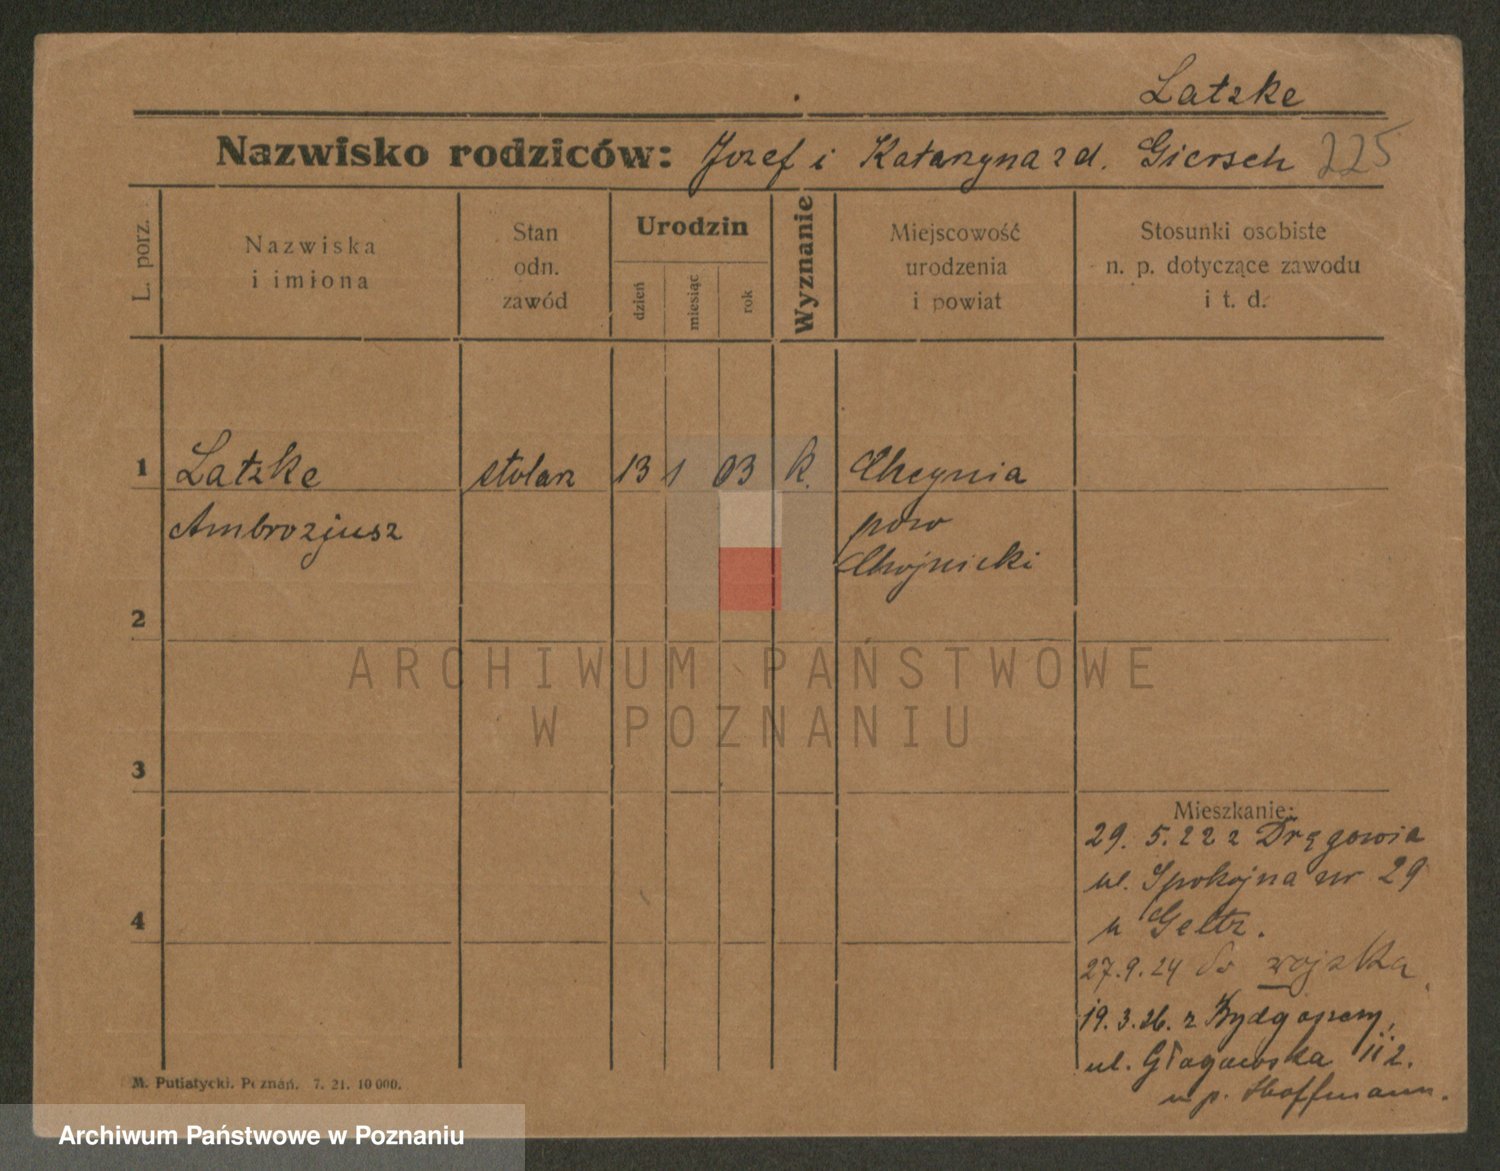 Latzke
Nazwisko rodziców: Józef i Katarzyna z d. Giersch 225
L. porz.
Nazwiska
i imiona
Stan
odn.
zawód
Urodzin
dzień
miesiąc
rok
Wyznanie
Miejscowość
urodzenia
i powiat
Stosunki osobiste
n. p. dotyczące zawodu
i t. d.
1 Latzke stolarz 13 1 03 k.
Ambrozjusz pow
Chojnicki
2
ARCHIWUM PAŃSTWOWE
W POZNANIU
3
Mieszkanie:
29. 5. 22 z
ul. Spokojna nr 29
u
4
27.9.24 do wojska
19. 3. 26. z Bydgoszczy,
ul. Głogowska 112.
u p. Hoffmann.
M. Putiatycki. Poznań. 7. 21. 10 000.
Archiwum Państwowe w Poznaniu